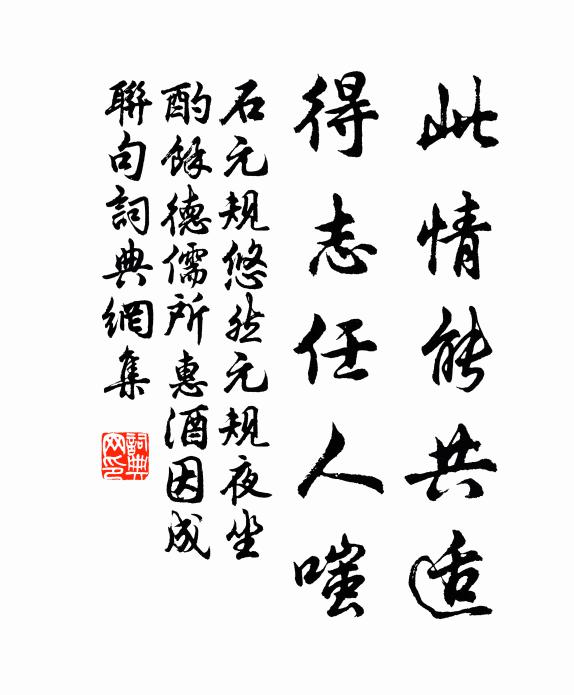 此情能共适
得志任人嗤
石元規悠然元規夜坐
酌餘德儒所惠酒因成
聯句詞典網集
詞典網印